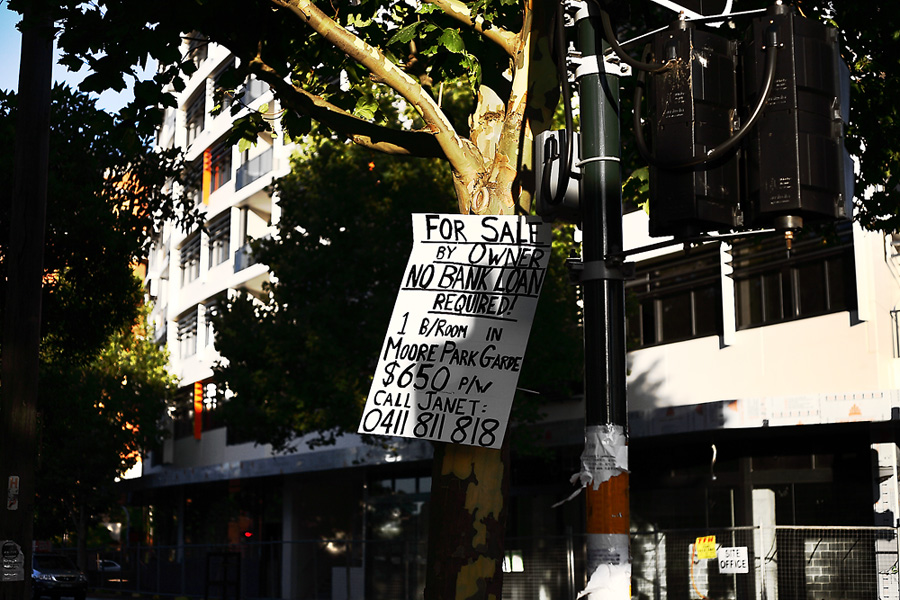 FOR SALE
BY OWNER
NO BANK LOAN
REQUIRED!
1 B/ROOM IN
MOORE PARK GARDE
$650 P/W
CALL JANET:
0411 811 818
SITE
OFFICE